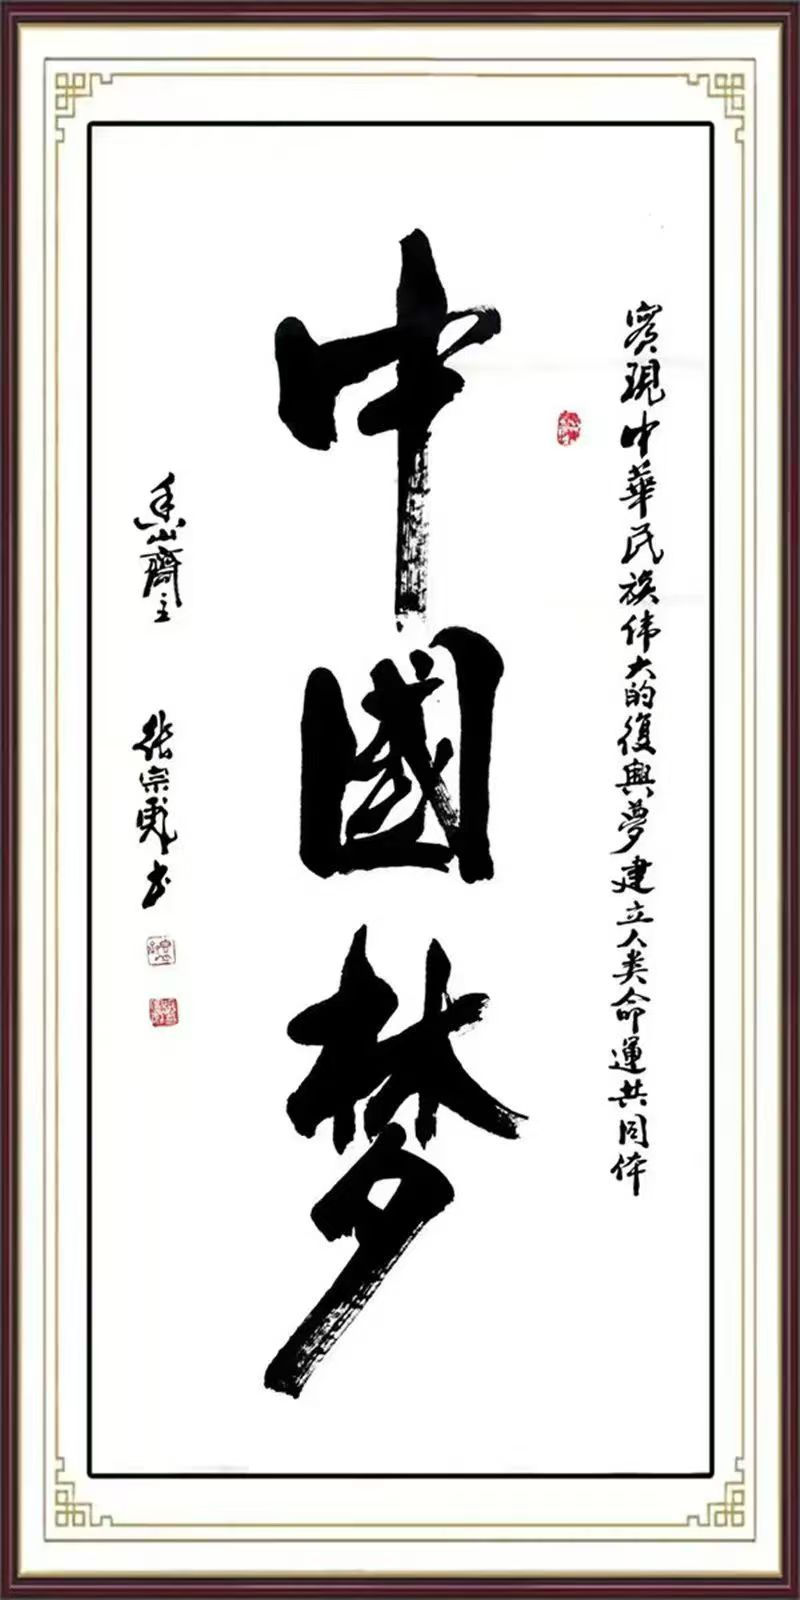 實現中華民族伟大的復興夢建立人类命運共同体
中國梦
香山齋主
张宗彪书